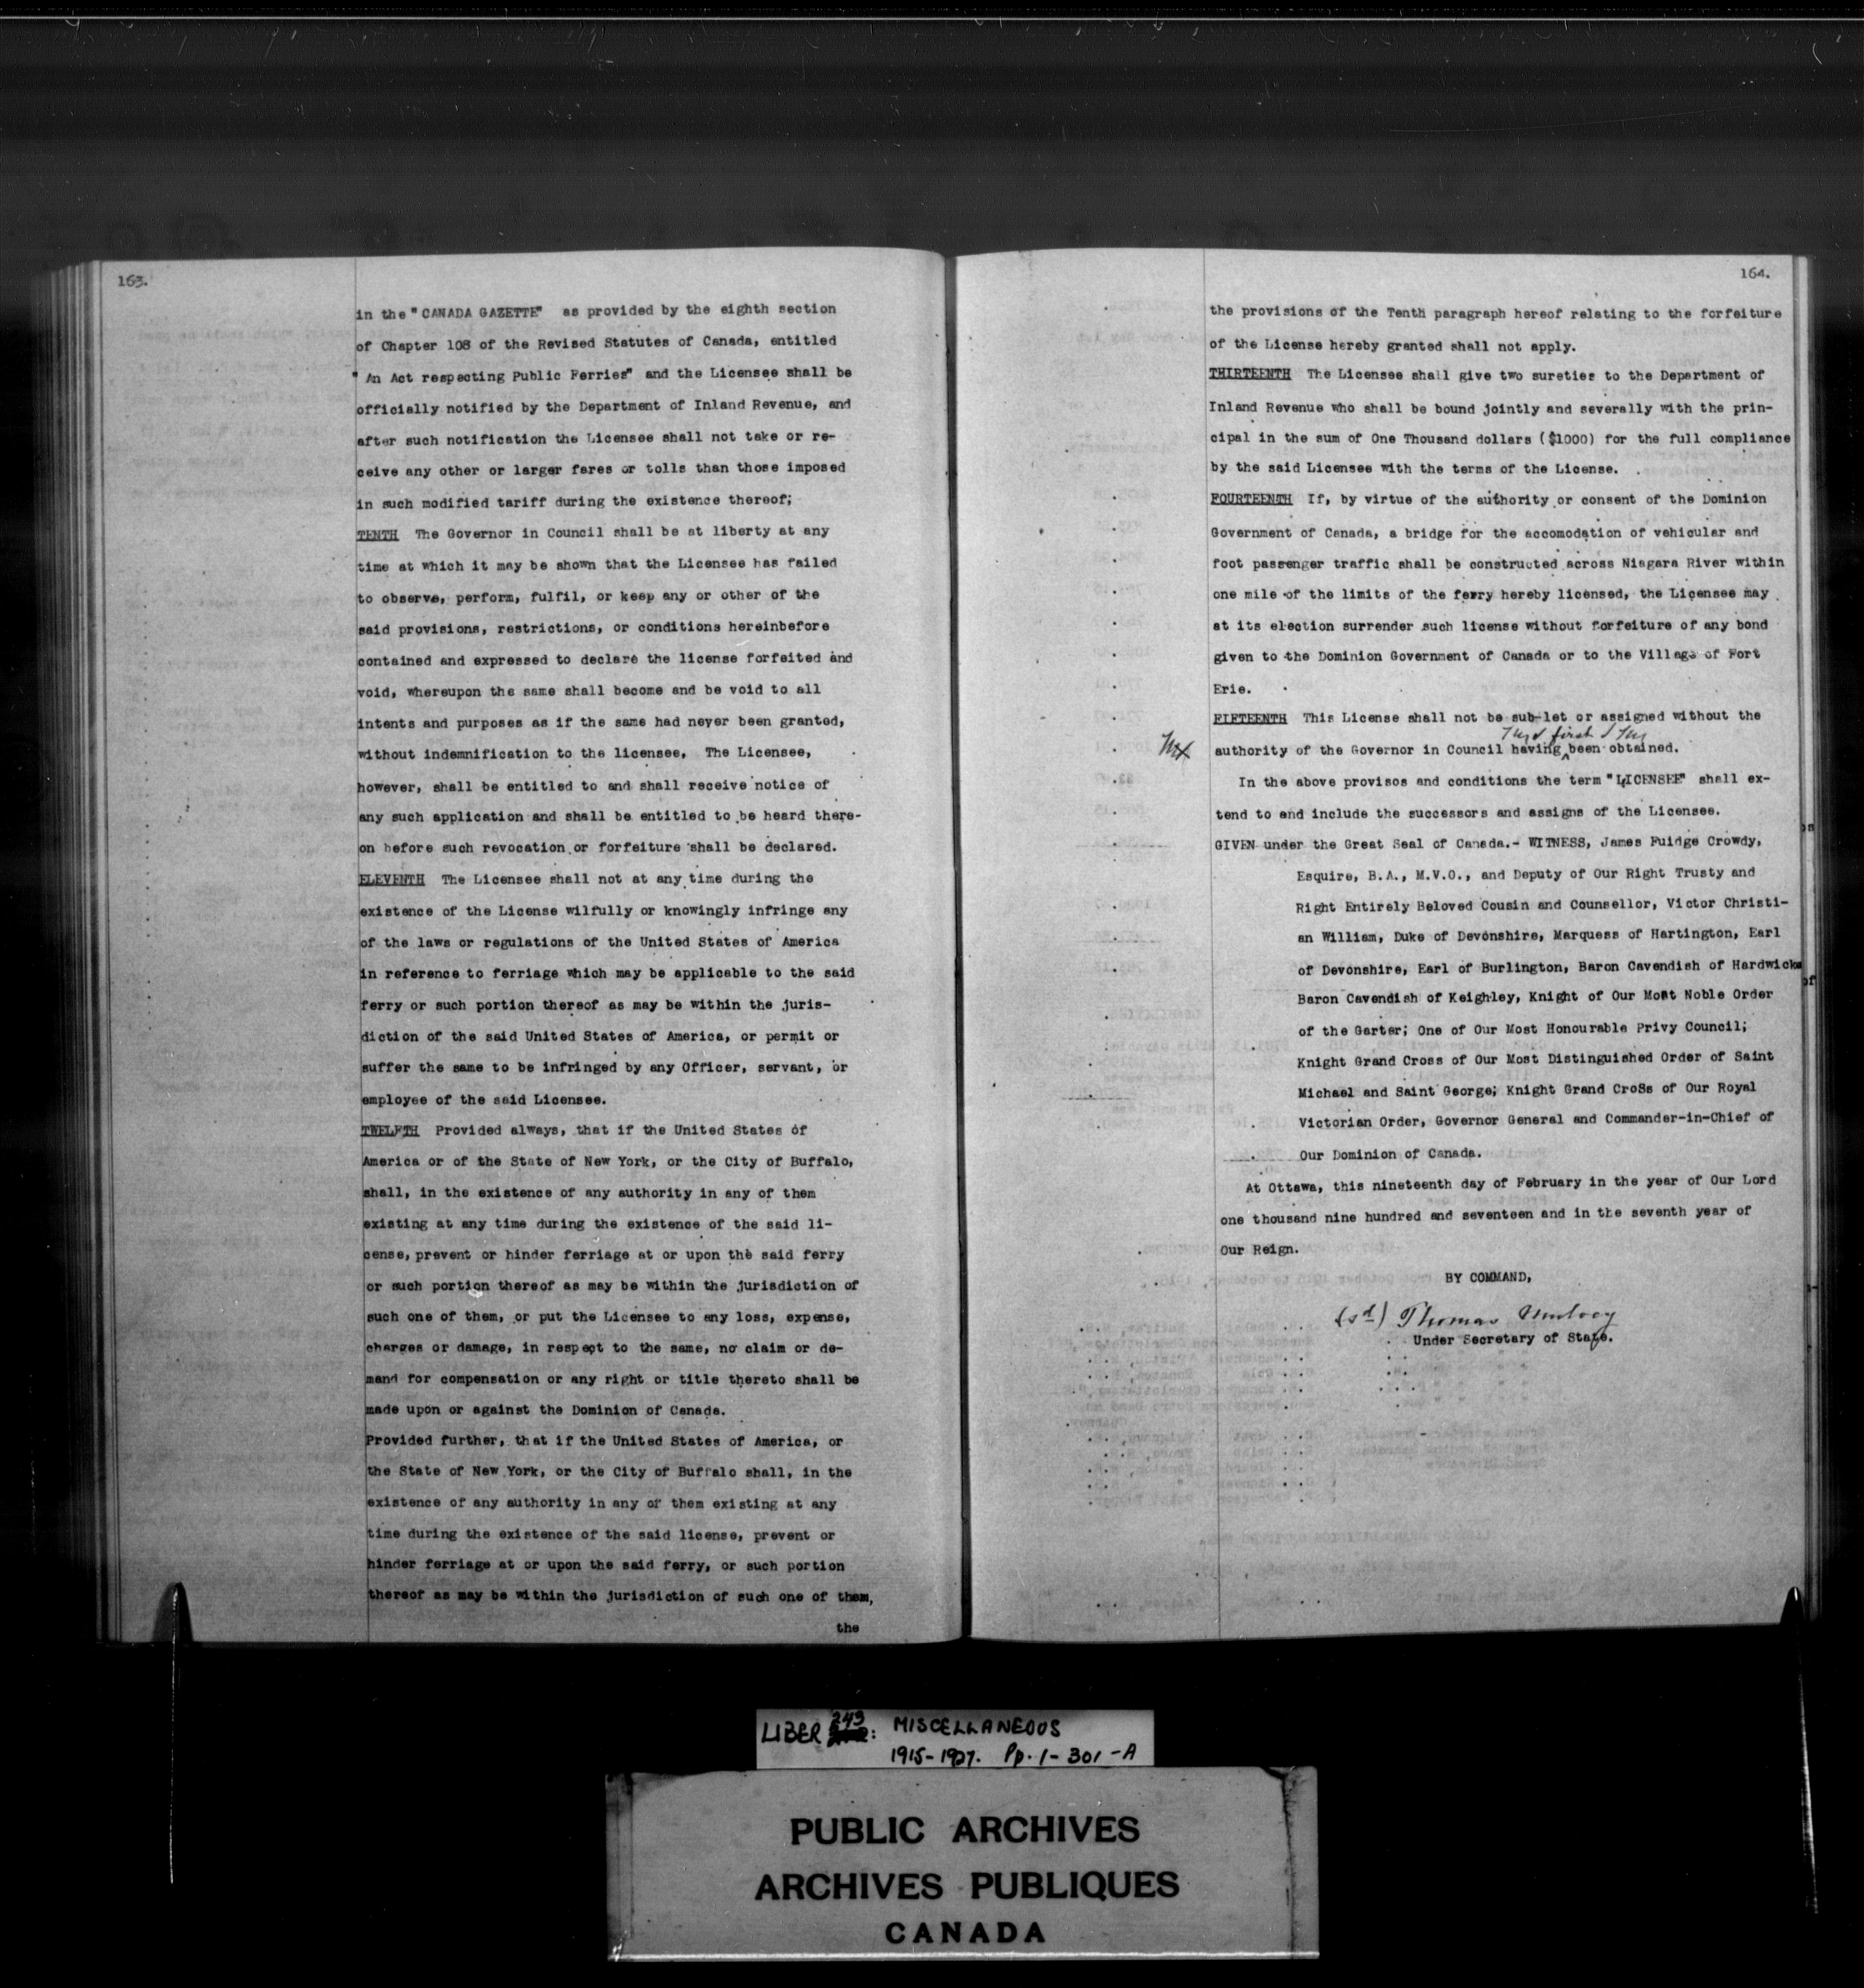 163.
in the "CANADA GAZETTE" as provided by the eighth section
of Chapter 108 of the Revised Statutes of Canada, entitled
" An Act respecting Public Ferries" and the Licensee shall be
officially notified by the Department of Inland Revenue, and
after such notification the Licensee shall not take or re-
ceive any other or larger fares or tolls than those imposed
in such modified tariff during the existence thereof;
TENTH The Governor in Council shall be at liberty at any
time at which it may be shown that the Licensee has failed
to observe, perform, fulfil, or keep any or other of the
said provisions, restrictions, or conditions hereinbefore
contained and expressed to declare the license forfeited and
void, whereupon the same shall become and be void to all
intents and purposes as if the same had never been granted,
without indemnification to the licensee, The Licensee,
however, shall be entitled to and shall receive notice of
any such application and shall be entitled to be heard there-
on before such revocation or forfeiture shall be declared.
ELEVENTH The Licensee shall not at any time during the
existence of the License wilfully or knowingly infringe any
of the laws or regulations of the United States of America
in reference to ferriage which may be applicable to the said
ferry or such portion thereof as may be within the juris-
diction of the said United States of America, or permit or
suffer the same to be infringed by any Officer, servant, or
employee of the said Licensee.
TWELFTH Provided always, that if the United States of
America or of the State of New York, or the City of Buffalo,
shall, in the existence of any authority in any of them
existing at any time during the existence of the said li-
cense, prevent or hinder ferriage at or upon the said ferry
or such portion thereof as may be within the jurisdiction of
such one of them, or put the Licensee to any loss, expense,
charges or damage, in respect to the same, no claim or de-
mand for compensation or any right or title thereto shall be
made upon or against the Dominion of Canada.
Provided further, that if the United States of America, or
the State of New York, or the City of Buffalo shall, in the
existence of any authority in any of them existing at any
time during the existence of the said license, prevent or
hinder ferriage at or upon the said ferry, or such portion
thereof as may be within the jurisdiction of such one of them,
the
164.
the provisions of the Tenth paragraph hereof relating to the forfeiture
of the License hereby granted shall not apply.
THIRTEENTH The Licensee shall give two sureties to the Department of
Inland Revenue who shall be bound jointly and severally with the prin-
cipal in the sum of One Thousand dollars ($1000) for the full compliance
by the said Licensee with the terms of the License.
FOURTEENTH If, by virtue of the authority or consent of the Dominion
Government of Canada, a bridge for the accomodation of vehicular and
foot passenger traffic shall be constructed across Niagara River within
one mile of the limits of the ferry hereby licensed, the Licensee may
at its election surrender such license without forfeiture of any bond
given to the Dominion Government of Canada or to the Village of Fort
Erie.
FIFTEENTH This License shall not be sub-let or assigned without the
first
authority of the Governor in Council having been obtained.
In the above provisos and conditions the term "LICENSEE" shall ex-
tend to and include the successors and assigns of the Licensee.
GIVEN under the Great Seal of Canada.- WITNESS, James Fuidge Crowdy,
Esquire, B.A., M.V.O., and Deputy of Our Right Trusty and
Right Entirely Beloved Cousin and Counsellor, Victor Christi-
an William, Duke of Devonshire, Marquess of Hartington, Earl
of Devonshire, Earl of Burlington, Baron Cavendish of Hardwicke
Baron Cavendish of Keighley, Knight of Our Most Noble Order
of the Garter; One of Our Most Honourable Privy Council;
Knight Grand Cross of Our Most Distinguished Order of Saint
Michael and Saint George; Knight Grand CroSs of Our Royal
Victorian Order, Governor General and Commander-in-Chief of
Our Dominion of Canada.
At Ottawa, this nineteenth day of February in the year of Our Lord
one thousand nine hundred and seventeen and in the seventh year of
Our Reign.
BY COMMAND,
(sd) Thomas Mulvey
Under Secretary of State.
LIBER 243: MISCELLANEOUS
1915-1927. Pp. 1-301-A
PUBLIC ARCHIVES
ARCHIVES PUBLIQUES
CANADA